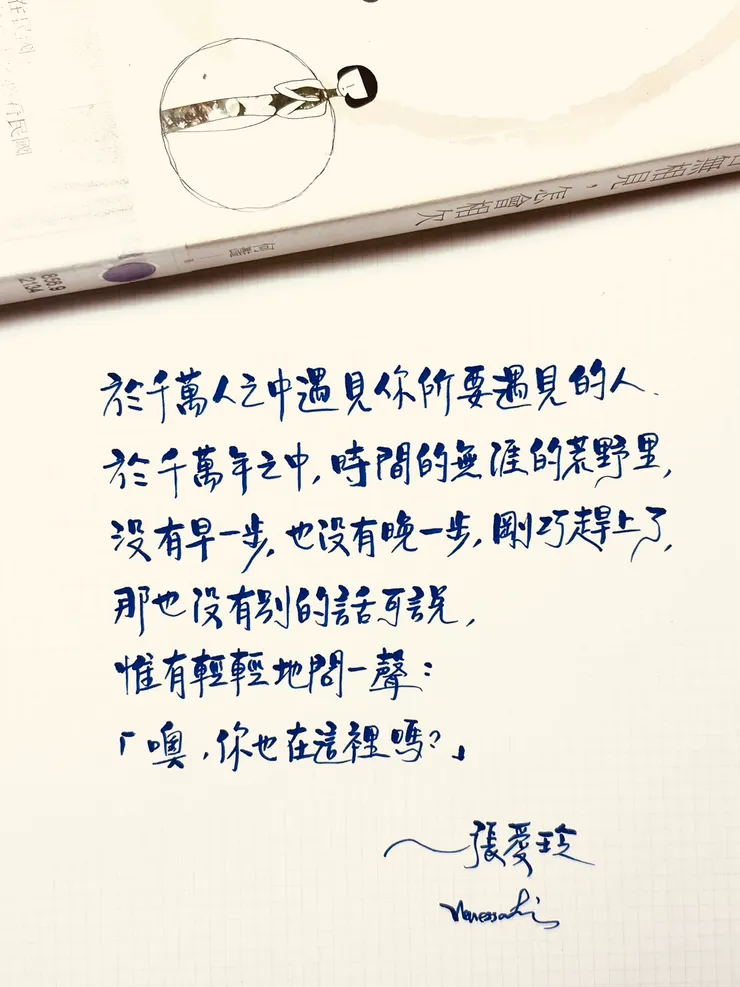 無相見,怎會相欠
856.9
2134
於千萬人之中遇見你所要遇見的人.
於千萬年之中,時間的無涯的荒野里,
沒有早一步,也沒有晚一步,剛巧趕上了,
那也沒有別的話可說,
惟有輕輕地問一聲:
「噢,你也在這裡嗎?」
～張愛玲